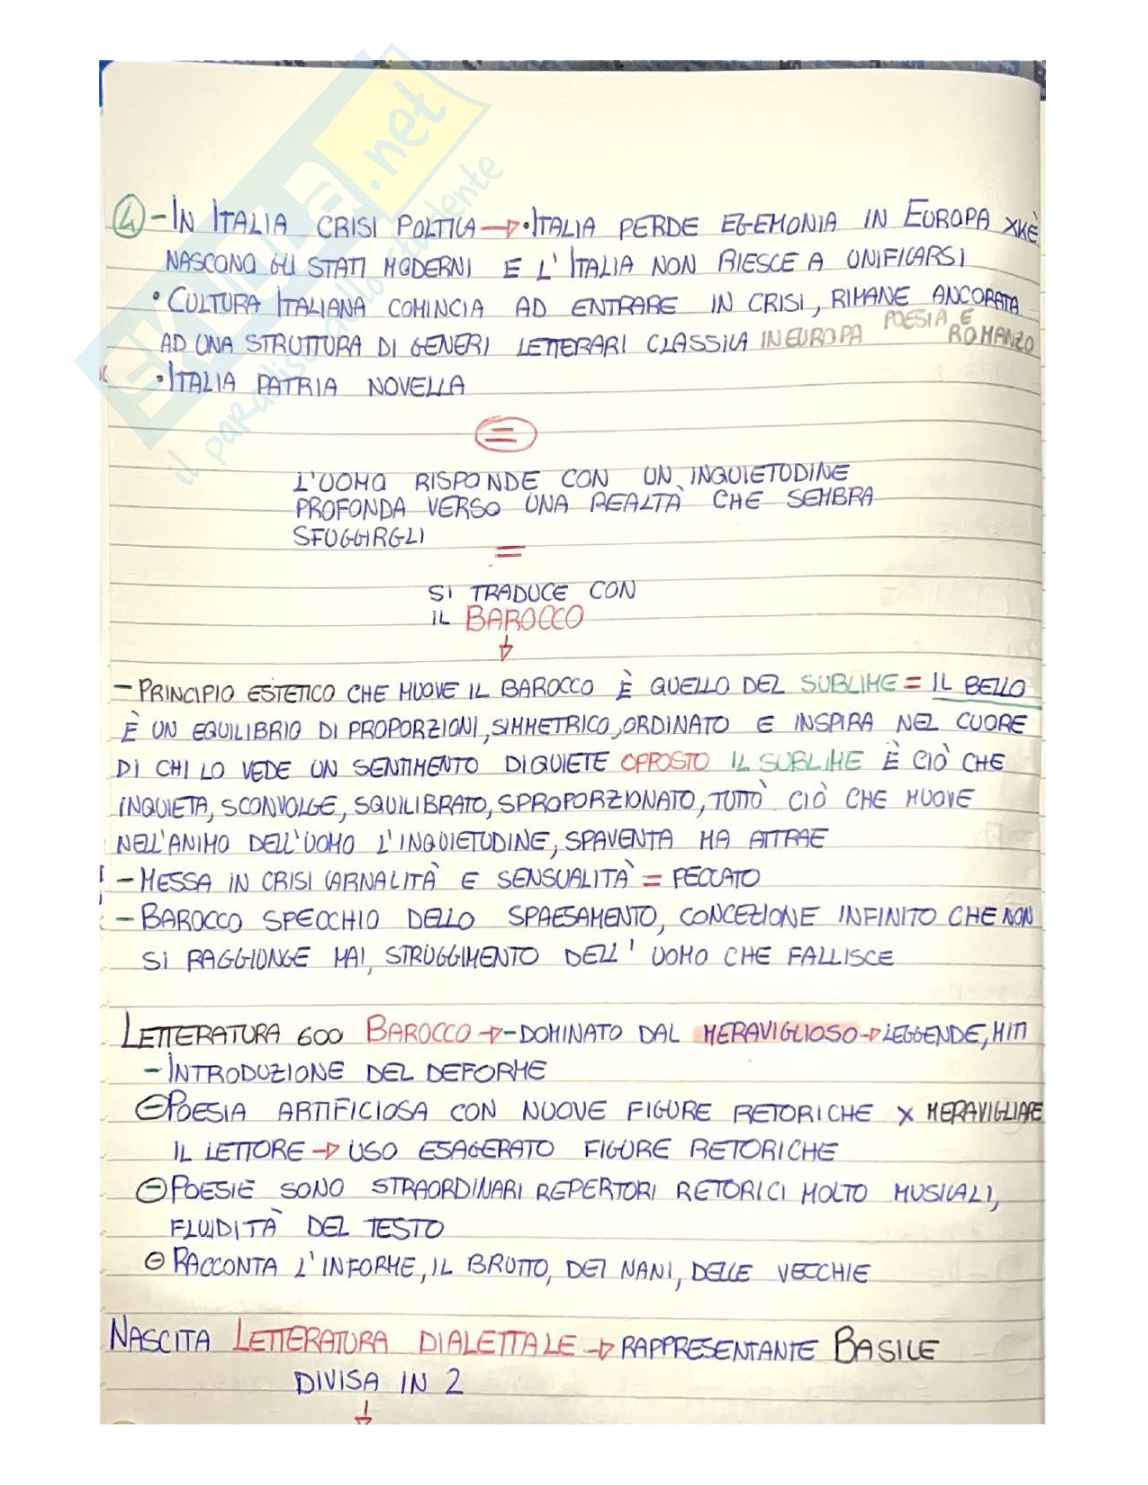 SKUOLA.net
il paradiso dello studente
4 - IN ITALIA CRISI POLTICA → • ITALIA PERDE EGEMONIA IN EUROPA XKÈ
NASCONO GLI STATI MODERNI E L'ITALIA NON RIESCE A UNIFICARSI
• CULTURA ITALIANA COMINCIA AD ENTRARE IN CRISI, RIMANE ANCORATA
AD UNA STRUTTURA DI GENERI LETTERARI CLASSICA IN EUROPA POESIA E ROMANZO
• ITALIA PATRIA NOVELLA
=
L'UOMO RISPONDE CON UN INQUIETUDINE
PROFONDA VERSO UNA REALTÀ CHE SEMBRA
SFUGGIRGLI
=
SI TRADUCE CON
IL BAROCCO
↓
- PRINCIPIO ESTETICO CHE MUOVE IL BAROCCO È QUELLO DEL SUBLIME = IL BELLO
È UN EQUILIBRIO DI PROPORZIONI, SIMMETRICO, ORDINATO E INSPIRA NEL CUORE
DI CHI LO VEDE UN SENTIMENTO DI QUIETE OPPOSTO IL SUBLIME È CIÒ CHE
INQUIETA, SCONVOLGE, SQUILIBRATO, SPROPORZIONATO, TUTTÒ CIÒ CHE MUOVE
NELL'ANIMO DELL'UOMO L'INQUIETUDINE, SPAVENTA MA ATTRAE
- MESSA IN CRISI CARNALITÀ E SENSUALITÀ = PECCATO
- BAROCCO SPECCHIO DELLO SPAESAMENTO, CONCEZIONE INFINITO CHE NON
SI RAGGIUNGE MAI, STRUGGIMENTO DELL' UOMO CHE FALLISCE
LETTERATURA 600 BAROCCO → - DOMINATO DAL MERAVIGLIOSO → LEGGENDE, MITI
- INTRODUZIONE DEL DEFORME
- POESIA ARTIFICIOSA CON NUOVE FIGURE RETORICHE X MERAVIGLIARE
IL LETTORE → USO ESAGERATO FIGURE RETORICHE
- POESIE SONO STRAORDINARI REPERTORI RETORICI MOLTO MUSICALI,
FLUIDITÀ DEL TESTO
- RACCONTA L'INFORME, IL BRUTTO, DEI NANI, DELLE VECCHIE
NASCITA LETTERATURA DIALETTALE → RAPPRESENTANTE BASILE
DIVISA IN 2
↓